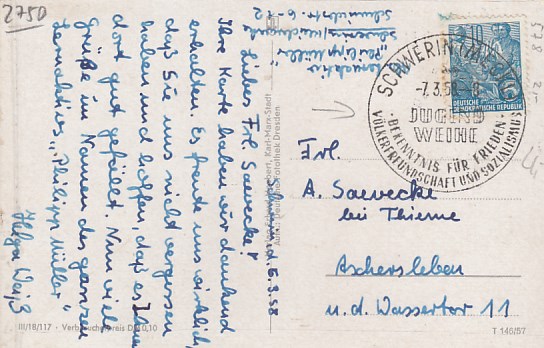 2750
Lernaktiv
"Philipp Müller"
Schwerin, d. 6.3.58
Liebes Frl. Saevecke!
Ihre Karte haben wir dankend
erhalten. Es freute uns wirklich,
daß Sie uns nicht vergessen
haben und hoffen, daß es Ihnen
dort gut gefällt. Nun viele
Grüße im Namen des ganzen
Lernaktives "Philipp Müller"
Helga Weiß
SCHWERIN (MECKL)
-7.3.58.-8
JUGEND
WEIHE
BEKENNTNIS FÜR FRIEDEN
VÖLKERFREUNDSCHAFT UND SOZIALISMUS
DEUTSCHE
DEMOKRATISCHE REPUBLIK
10
Frl.
A. Saevecke
bei Thieme
Aschersleben
u. d. Wassertor 11
III/18/117 · Verbraucherpreis DM 0,10
T 146/57